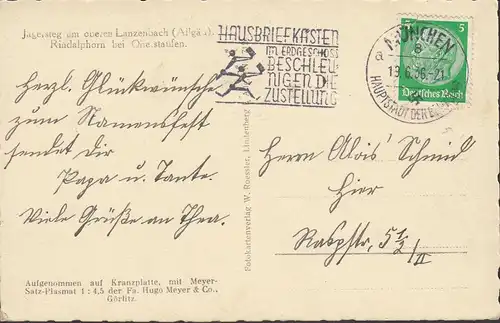 Jägersteg am oberen Lanzenbach (Allgäu).
Rindalphorn bei Oberstaufen.
HAUSBRIEFKÄSTEN
IM ERDGESCHOSS
BESCHLEU-
NIGEN DIE
ZUSTELLUNG
MÜNCHEN
HAUPTSTADT DER
5
Deutsches Reich
Herzl. Glückwünsche
zum Namensfest
sendet dir
Papa u. Tante.
Viele Grüße an Thea.
Aufgenommen auf Kranzplatte, mit Meyer-
Satz-Plasmat 1 : 4,5 der Fa. Hugo Meyer & Co.,
Görlitz.
Fotokartenverlag W. Ruessler, Lindenberg
Herrn Alois Schmid
Hier
Raspstr. 5 1/2/II